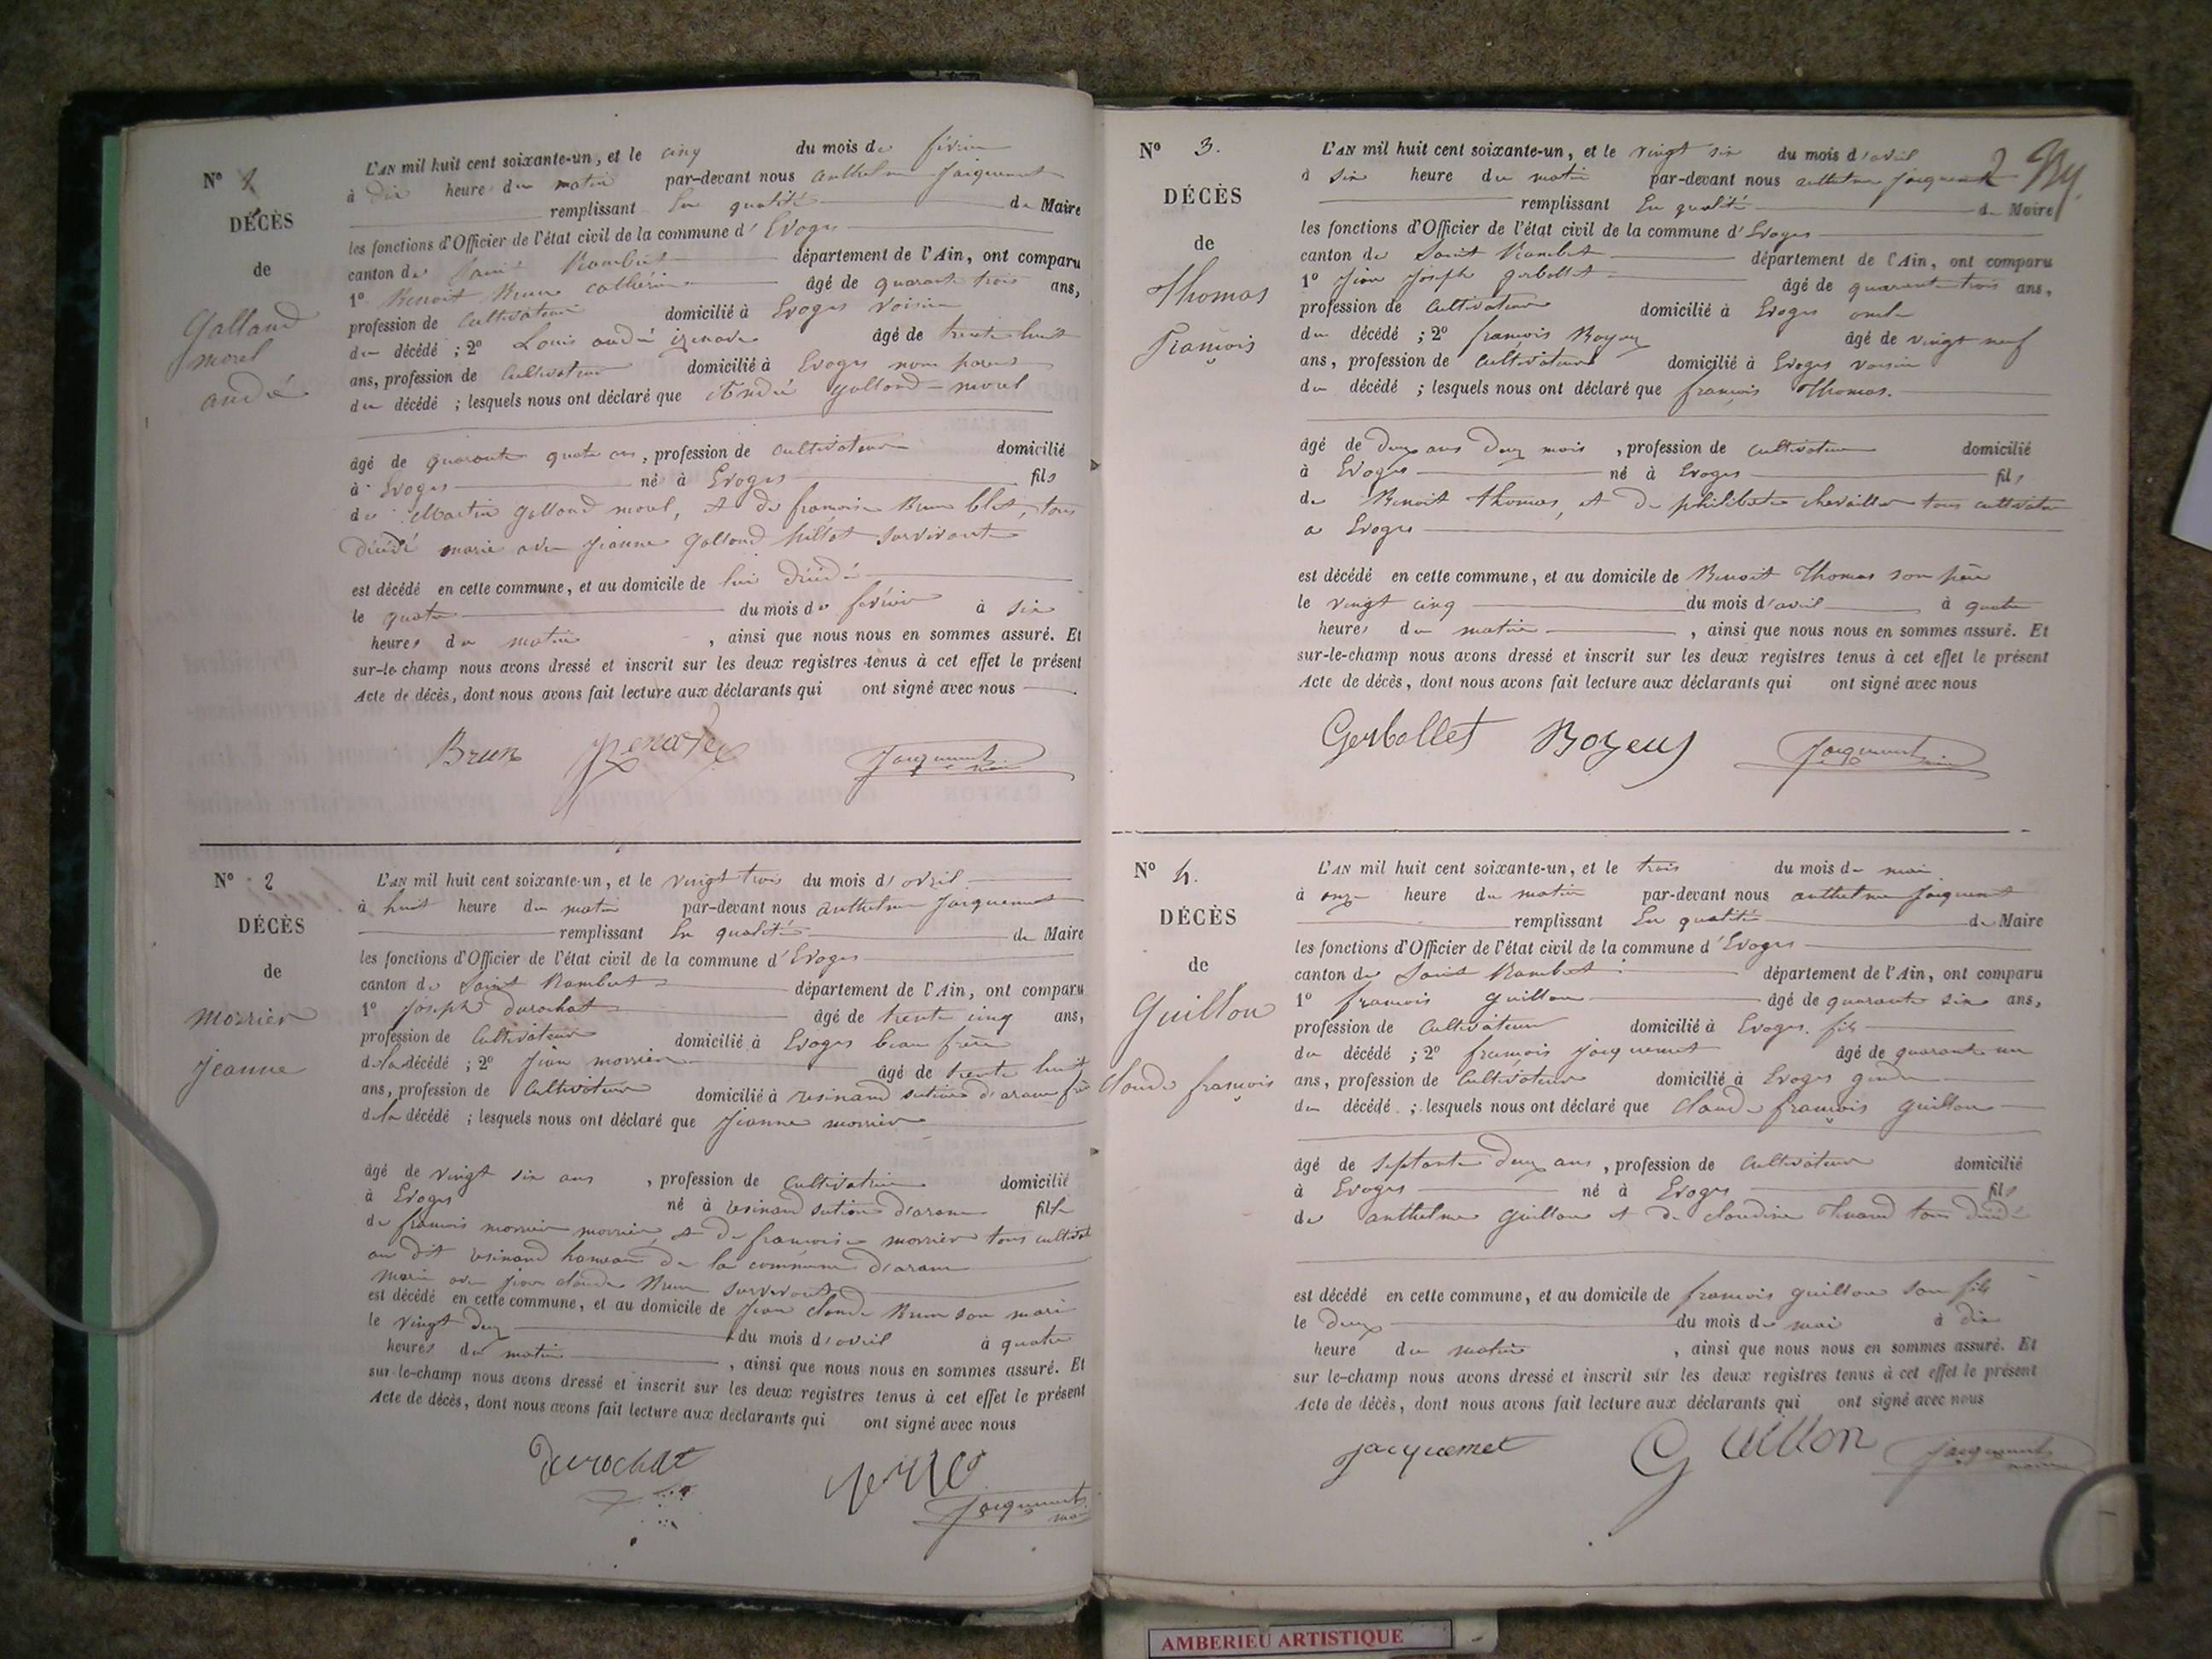 N° 1
DÉCÈS
de
Galland
morel
andré
L'AN mil huit cent soixante-un, et le cinq du mois de février
à dix heure du matin par-devant nous anthelme Jacquemet
remplissant En qualité de Maire
les fonctions d'Officier de l'état civil de la commune d'Evoges
canton de Saint Rambert département de l'Ain, ont comparu
1° Benoit Brun catherin âgé de quarante trois ans,
profession de Cultivateur domicilié à Evoges voisin
du décédé ; 2° Louis andré âgé de trente huit
ans, profession de Cultivateur domicilié à Evoges non parent
du décédé ; lesquels nous ont déclaré que André Galland-morel
âgé de quarante quatre ans, profession de cultivateur domicilié
à Evoges né à Evoges fils
de Martin Galland morel, et de françoise Brun blet, tous
décédé marié avec jeanne Galland survivante
est décédé en cette commune, et au domicile de lui décédé
le quatre du mois de février à six
heures du matin , ainsi que nous nous en sommes assuré. Et
sur-le-champ nous avons dressé et inscrit sur les deux registres tenus à cet effet le présent
Acte de décès, dont nous avons fait lecture aux déclarants qui ont signé avec nous
Brun Jacquemet maire
N° 2
DÉCÈS
de
morrier
jeanne
L'AN mil huit cent soixante-un, et le vingt trois du mois d'avril
à huit heure du matin par-devant nous anthelme Jacquemet
remplissant En qualité de Maire
les fonctions d'Officier de l'état civil de la commune d'Evoges
canton de Saint Rambert département de l'Ain, ont comparu
1° Joseph durochat âgé de trente cinq ans,
profession de Cultivateur domicilié à Evoges beau frère
de la décédé ; 2° Jean morrier âgé de trente huit
ans, profession de Cultivateur domicilié à resinand section d'aranc frère
de la décédé ; lesquels nous ont déclaré que Jeanne morrier
âgé de vingt six ans , profession de Cultivatrice domicilié
à Evoges né à resinand section d'aranc fille
de françois morrier morrier, et de françoise morrier tous cultivat
au dit resinand hameau de la commune d'aranc
marié avec jean claude Brun survivant
est décédé en cette commune, et au domicile de Jean claude Brun son mari
le vingt deux du mois d'avril à quatre
heures du matin , ainsi que nous nous en sommes assuré. Et
sur-le-champ nous avons dressé et inscrit sur les deux registres tenus à cet effet le présent
Acte de décès, dont nous avons fait lecture aux déclarants qui ont signé avec nous
Durochat
Jacquemet
maire
N° 3.
DÉCÈS
de
Thomas
françois
L'AN mil huit cent soixante-un, et le vingt six du mois d'avril 2
à six heure du matin par-devant nous anthelme Jacquemet
remplissant En qualité de Maire
les fonctions d'Officier de l'état civil de la commune d'Evoges
canton de Saint Rambert département de l'Ain, ont comparu
1° Jean Joseph gerbollet âgé de quarante trois ans,
profession de Cultivateur domicilié à Evoges oncle
du décédé ; 2° françois Boyeux âgé de vingt neuf
ans, profession de Cultivateur domicilié à Evoges voisin
du décédé ; lesquels nous ont déclaré que françois Thomas.
âgé de deux ans deux mois , profession de cultivateur domicilié
à Evoges né à Evoges fils
de Benoit Thomas, et de philiberte chevaillier tous cultivateur
a Evoges
est décédé en cette commune, et au domicile de Benoit Thomas son père
le vingt cinq du mois d'avril à quatre
heures du matin , ainsi que nous nous en sommes assuré. Et
sur-le-champ nous avons dressé et inscrit sur les deux registres tenus à cet effet le présent
Acte de décès, dont nous avons fait lecture aux déclarants qui ont signé avec nous
Gerbollet Boyeux Jacquemet maire
N° 4.
DÉCÈS
de
Guillon
claude françois
L'AN mil huit cent soixante-un, et le trois du mois de mai
à onze heure du matin par-devant nous anthelme Jacquemet
remplissant En qualité de Maire
les fonctions d'Officier de l'état civil de la commune d'Evoges
canton de Saint Rambert département de l'Ain, ont comparu
1° françois guillon âgé de quarante six ans,
profession de Cultivateur domicilié à Evoges. fils
du décédé ; 2° françois jacquemet âgé de quarante un
ans, profession de Cultivateur domicilié à Evoges gendre
du décédé ; lesquels nous ont déclaré que claude françois guillon
âgé de septante deux ans , profession de Cultivateur domicilié
à Evoges né à Evoges fils
de anthelme guillon et de claudine tous décédé
est décédé en cette commune, et au domicile de françois guillon son fils
le deux du mois de mai à dix
heure du matin , ainsi que nous nous en sommes assuré. Et
sur le-champ nous avons dressé et inscrit sur les deux registres tenus à cet effet le présent
Acte de décès, dont nous avons fait lecture aux déclarants qui ont signé avec nous
jacquemet Guillon Jacquemet
maire
AMBERIEU ARTISTIQUE